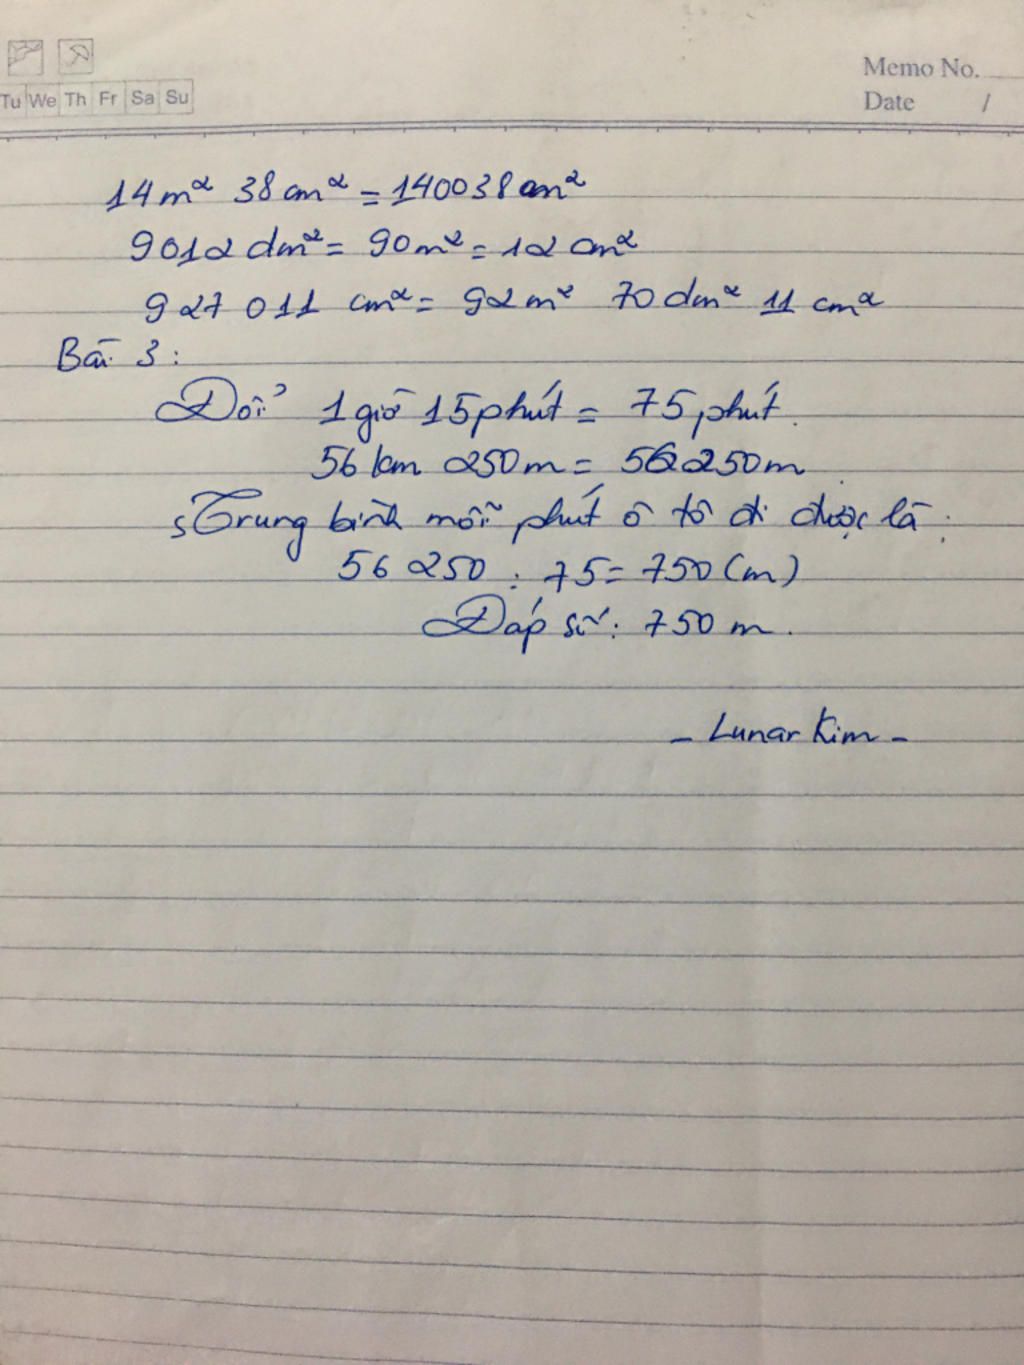 Memo No.
Tu We Th Fr Sa Su
Date /
14m² 38cm² = 140038cm²
9012dm² = 90m² = 12cm²
927011 cm² = 92m² 70dm² 11cm²
Bài 3:
Đổi 1 giờ 15 phút = 75 phút.
56 km 250m = 56250m
Trung bình mỗi phút ô tô đi được là:
56250 : 75 = 750 (m)
Đáp số: 750 m.
- Lunar Kim -